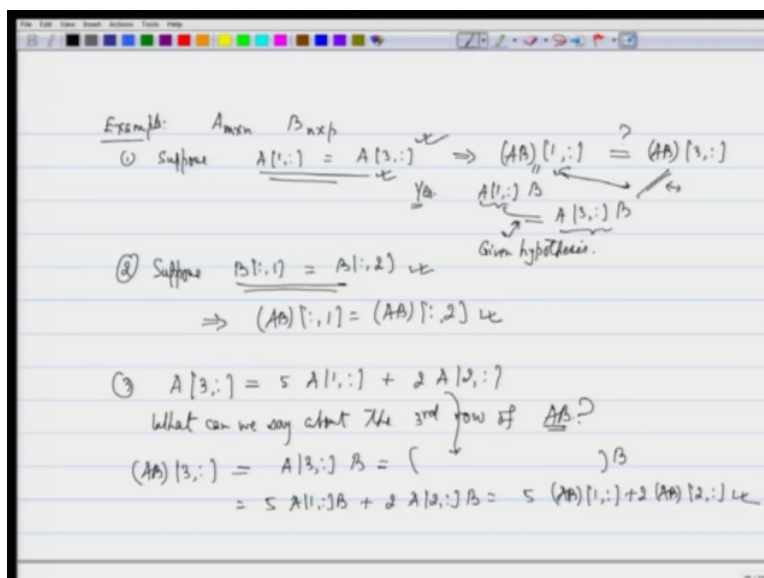 File Edit View Insert Actions Tools Help
Example: A_{m×n} B_{n×p}
① Suppose A[1,:] = A[3,:] ⇒ (AB)[1,:] =? (AB)[3,:]
Yes. A[1,:] B
= A[3,:] B
Given hypothesis.
② Suppose B[:,1] = B[:,2]
⇒ (AB)[:,1] = (AB)[:,2]
③ A[3,:] = 5 A[1,:] + 2 A[2,:]
What can we say about the 3rd row of AB?
(AB)[3,:] = A[3,:] B = ( ) B
= 5 A[1,:]B + 2 A[2,:]B = 5 (AB)[1,:] + 2 (AB)[2,:]